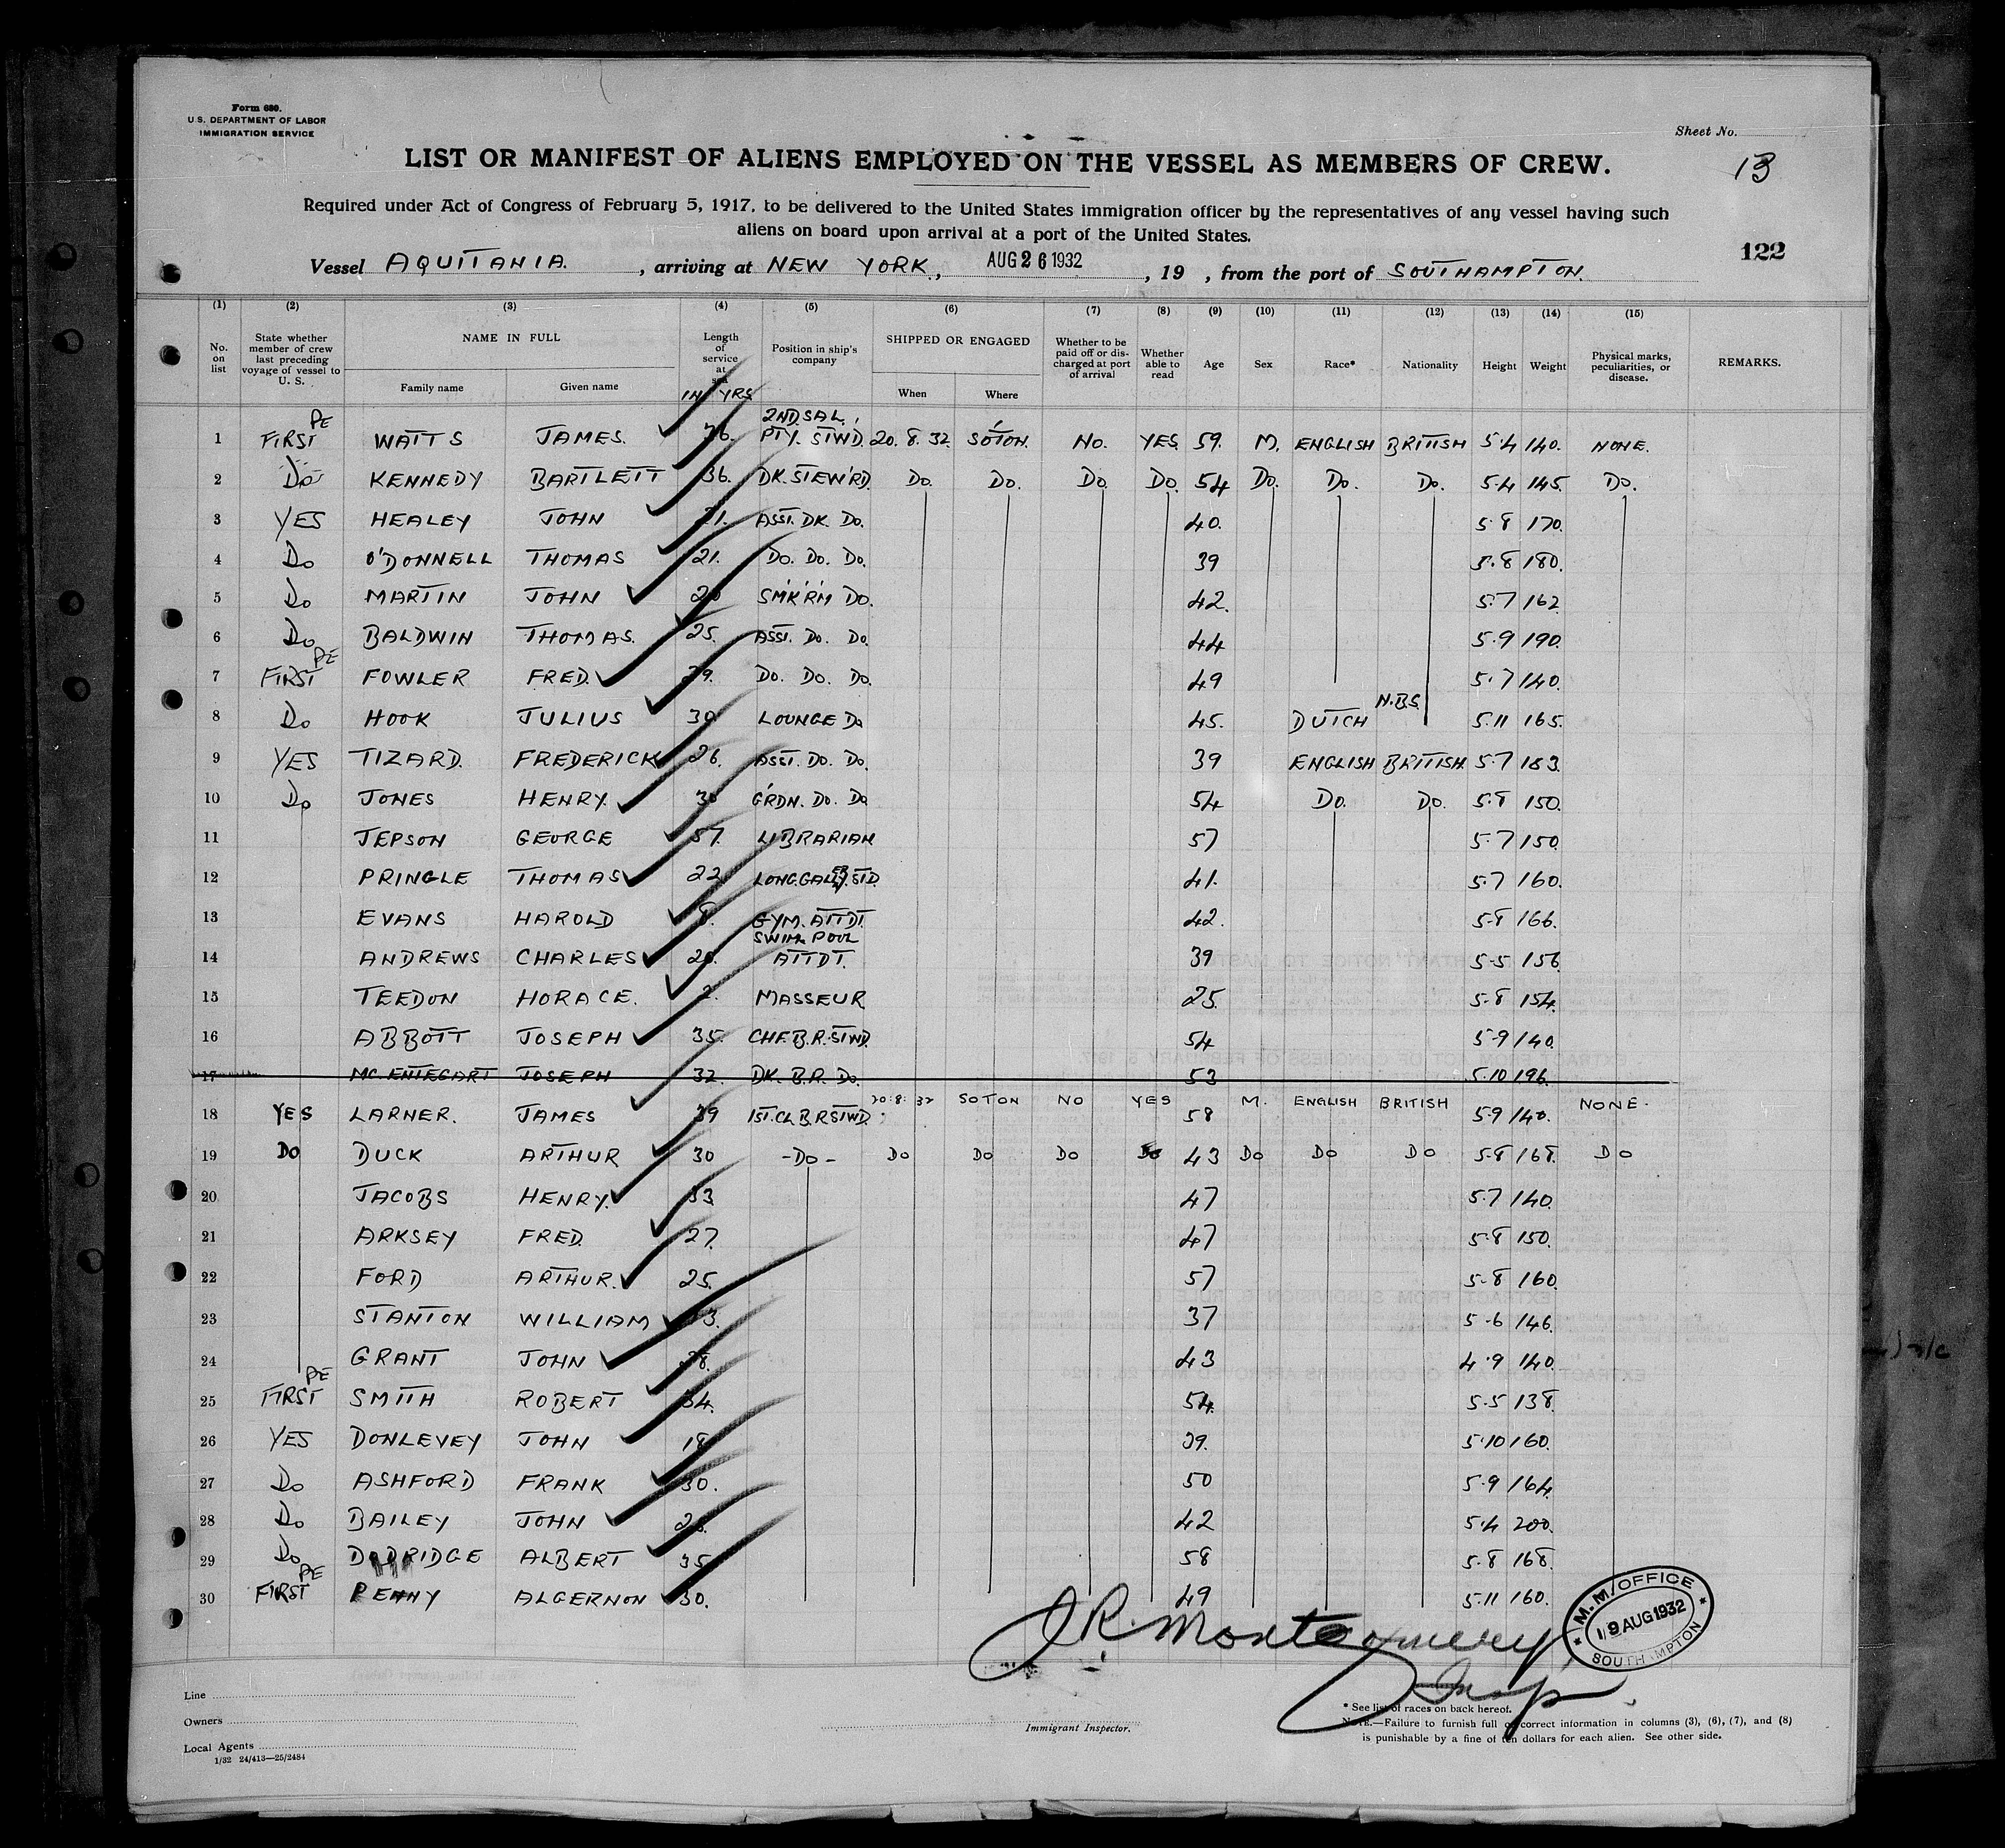 Form 680.
U.S. DEPARTMENT OF LABOR
IMMIGRATION SERVICE
Sheet No.
13
LIST OR MANIFEST OF ALIENS EMPLOYED ON THE VESSEL AS MEMBERS OF CREW.
Required under Act of Congress of February 5, 1917, to be delivered to the United States immigration officer by the representatives of any vessel having such
aliens on board upon arrival at a port of the United States.
122
Vessel AQUITANIA. , arriving at NEW YORK, AUG 26 1932 , 19 , from the port of SOUTHAMPTON.
(1) (2) (3) (4) (5) (6) (7) (8) (9) (10) (11) (12) (13) (14) (15)
No. on list State whether member of crew last preceding voyage of vessel to U. S. NAME IN FULL Family name Given name Length of service at sea IN YRS Position in ship's company SHIPPED OR ENGAGED When Where Whether to be paid off or discharged at port of arrival Whether able to read Age Sex Race* Nationality Height Weight Physical marks, peculiarities, or disease. REMARKS.
1 FIRST PE WATTS JAMES. 2ND. SAL. PTY. STWD. 20.8.32 SOTON. No. YES 59. M. ENGLISH BRITISH 5.4 140. NONE.
2 Do KENNEDY BARTLETT 36. DK. STEW'RD. Do. Do. Do Do. 54 Do. Do. Do. 5.4 145. Do.
3 YES HEALEY JOHN 21. ASST. DK. Do. 40. 5.8 170.
4 Do O'DONNELL THOMAS 21. Do. Do. Do. 39 5.8 180.
5 Do MARTIN JOHN SMK'RM Do. 42. 5.7 162
6 Do BALDWIN THOMAS. 25. ASST. Do. Do. 44 5.9 190.
7 FIRST PE FOWLER FRED. Do. Do. Do. 49 5.7 140.
8 Do HOOK JULIUS 30 LOUNGE Do 45. DUTCH N.B.S. 5.11 165.
9 YES TIZARD. FREDERICK 26. ASST. Do. Do. 39 ENGLISH BRITISH 5.7 183.
10 Do JONES HENRY. 30 G'RDN. Do. Do 54 Do. Do. 5.8 150.
11 JEPSON GEORGE LIBRARIAN 57 5.7 150.
12 PRINGLE THOMAS 22 41. 5.7 160.
13 EVANS HAROLD 8. GYM. ATTDT. 42. 5.8 166.
14 ANDREWS CHARLES 20. SWIM. POOL ATTDT. 39 5.5 156.
15 TEEDON HORACE. 2. MASSEUR 25. 5.8 154.
16 ABBOTT JOSEPH 35. CHF. B.R. STWD. 54 5.9 140.
17 MC. ENTEGART JOSEPH 32. DK. B.R. Do. 53 5.10 196.
18 YES LARNER. JAMES 39 1ST. CL. B.R STWD. 20.8.32 SOTON NO YES 58 M. ENGLISH BRITISH 5.9 140. NONE.
19 DO DUCK ARTHUR 30 -Do- Do Do Do Do 43 Do Do Do 5.8 168. Do
20 JACOBS HENRY. 33 47 5.7 140.
21 ARKSEY FRED. 27. 47 5.8 150.
22 FORD ARTHUR. 25. 57 5.8 160.
23 STANTON WILLIAM 37 5.6 146.
24 GRANT JOHN 43 4.9 140.
25 FIRST PE SMITH ROBERT 34. 54. 5.5 138.
26 YES DONLEVEY JOHN 18 39. 5.10 160.
27 Do ASHFORD FRANK 30. 50 5.9 164.
28 Do BAILEY JOHN 42 5.4 200.
29 Do DODRIDGE ALBERT 35 58 5.8 168.
30 FIRST PE PENNY ALGERNON 30. 49 5.11 160.
J R. Montgomery
Insp.
M.M. OFFICE
19 AUG 1932
SOUTHAMPTON
Line
Owners
Local Agents
1/32 24/413—25/2484
Immigrant Inspector.
* See list of races on back hereof.
NOTE.—Failure to furnish full or correct information in columns (3), (6), (7), and (8)
is punishable by a fine of ten dollars for each alien. See other side.